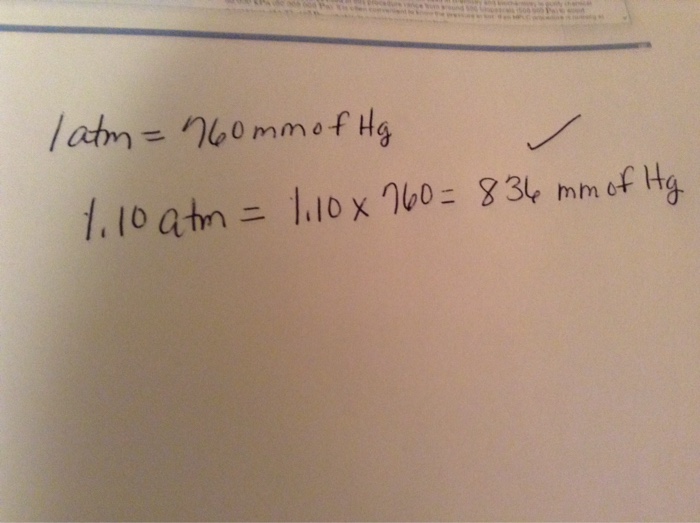 1 atm = 760 mm of Hg ✓
1.10 atm = 1.10 x 760 = 836 mm of Hg